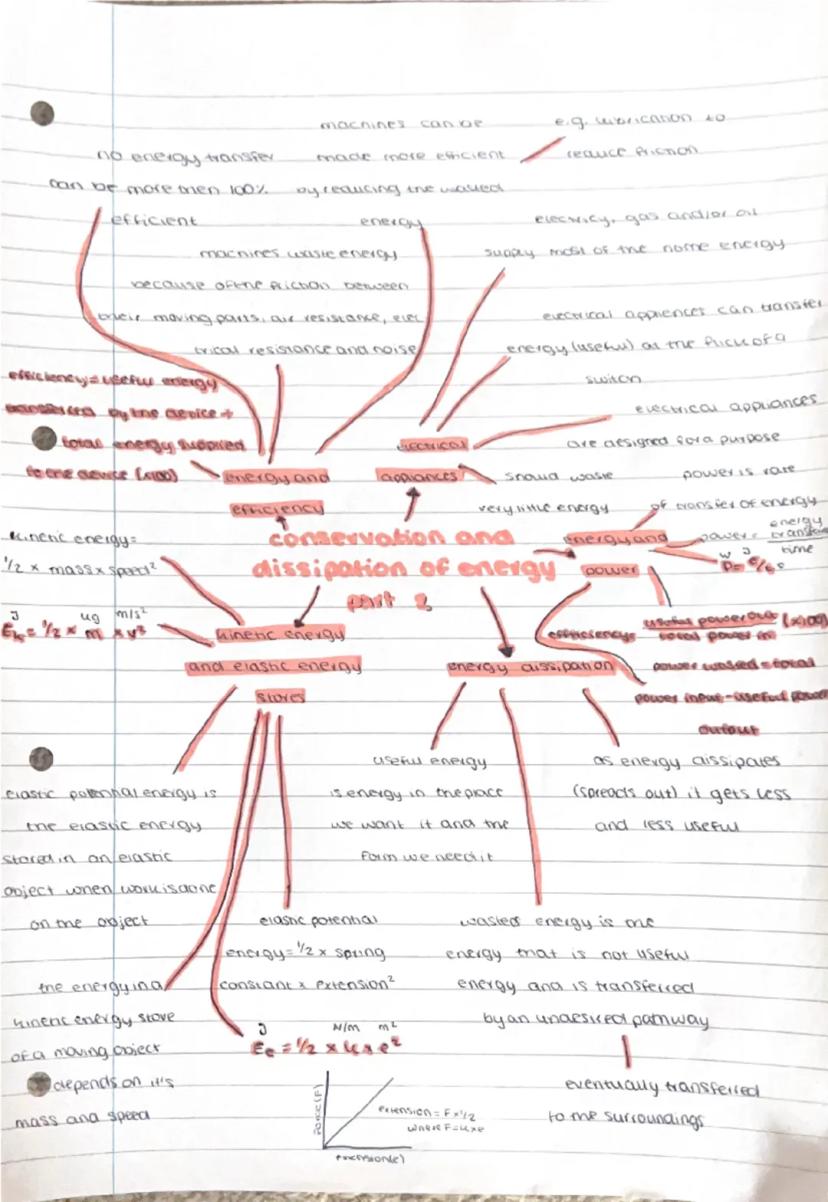 no energy transfer
can be more then 100%
efficient
machines can be
made more efficient
by reducing the wasted
energy
e.g. lubrication to
reduce friction
machines waste energy
because of the friction between
their moving parts, air resistance, elec
trical resistance and noise
electricity, gas and/or oil
supply most of the home energy
electrical appliences can transfer
energy (useful) at the flick of a
switch
electrical appliances
are designed for a purpose
should waste
very little energy
efficiency = useful energy
transferred by the device ÷
total energy supplied
to the device (x100)
energy and
efficiency
electrical
appliances
conservation and
dissipation of energy
part 2
energy and
power
power is rate
of transfer of energy
power = energy transfer
time
W J
P = E/t s
efficiency = useful power out (x100)
total power in
power wasted = total
power input - useful power
output
kinetic energy =
1/2 x mass x speed²
J kg m/s²
Ek = 1/2 x m x v²
kinetic energy
and elastic energy
stores
energy dissipation
elastic potential energy is
the elastic energy
stored in an elastic
object when work is done
on the object
the energy in a
kinetic energy store
of a moving object
depends on it's
mass and speed
elastic potential
energy = 1/2 x spring
constant x extension²
J N/m m²
Ee = 1/2 x k x e²
Force (F)
extension = F x 1/2
where F = k x e
extension (e)
useful energy
is energy in the place
we want it and the
form we need it
as energy dissipates
(spreads out) it gets less
and less useful
wasted energy is the
energy that is not useful
energy and is transferred
by an undesired pathway
eventually transferred
to the surroundings